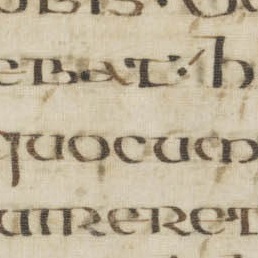 ebat· h
quocum
uireret